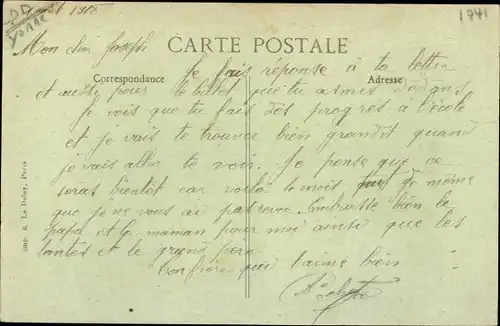 DD
YONNE
1741
Août 1918
Mon cher Joseph
CARTE POSTALE
Correspondance
Adresse
Je fais réponse à ta lettre
et aussi pour le billet que tu a mis
Je vois que tu fais des progrès à l'école
et je vais te trouver bien grandit quand
je vais aller te voir. Je pense que ce
seras bientôt car voilà le mois de même
que je ne vous ai pas revue. Embrasse bien le
papa et la maman pour moi ainsi que les
tantes et le grand père
Ton frère qui t'aime bien
Imp. E. Le Deley, Paris